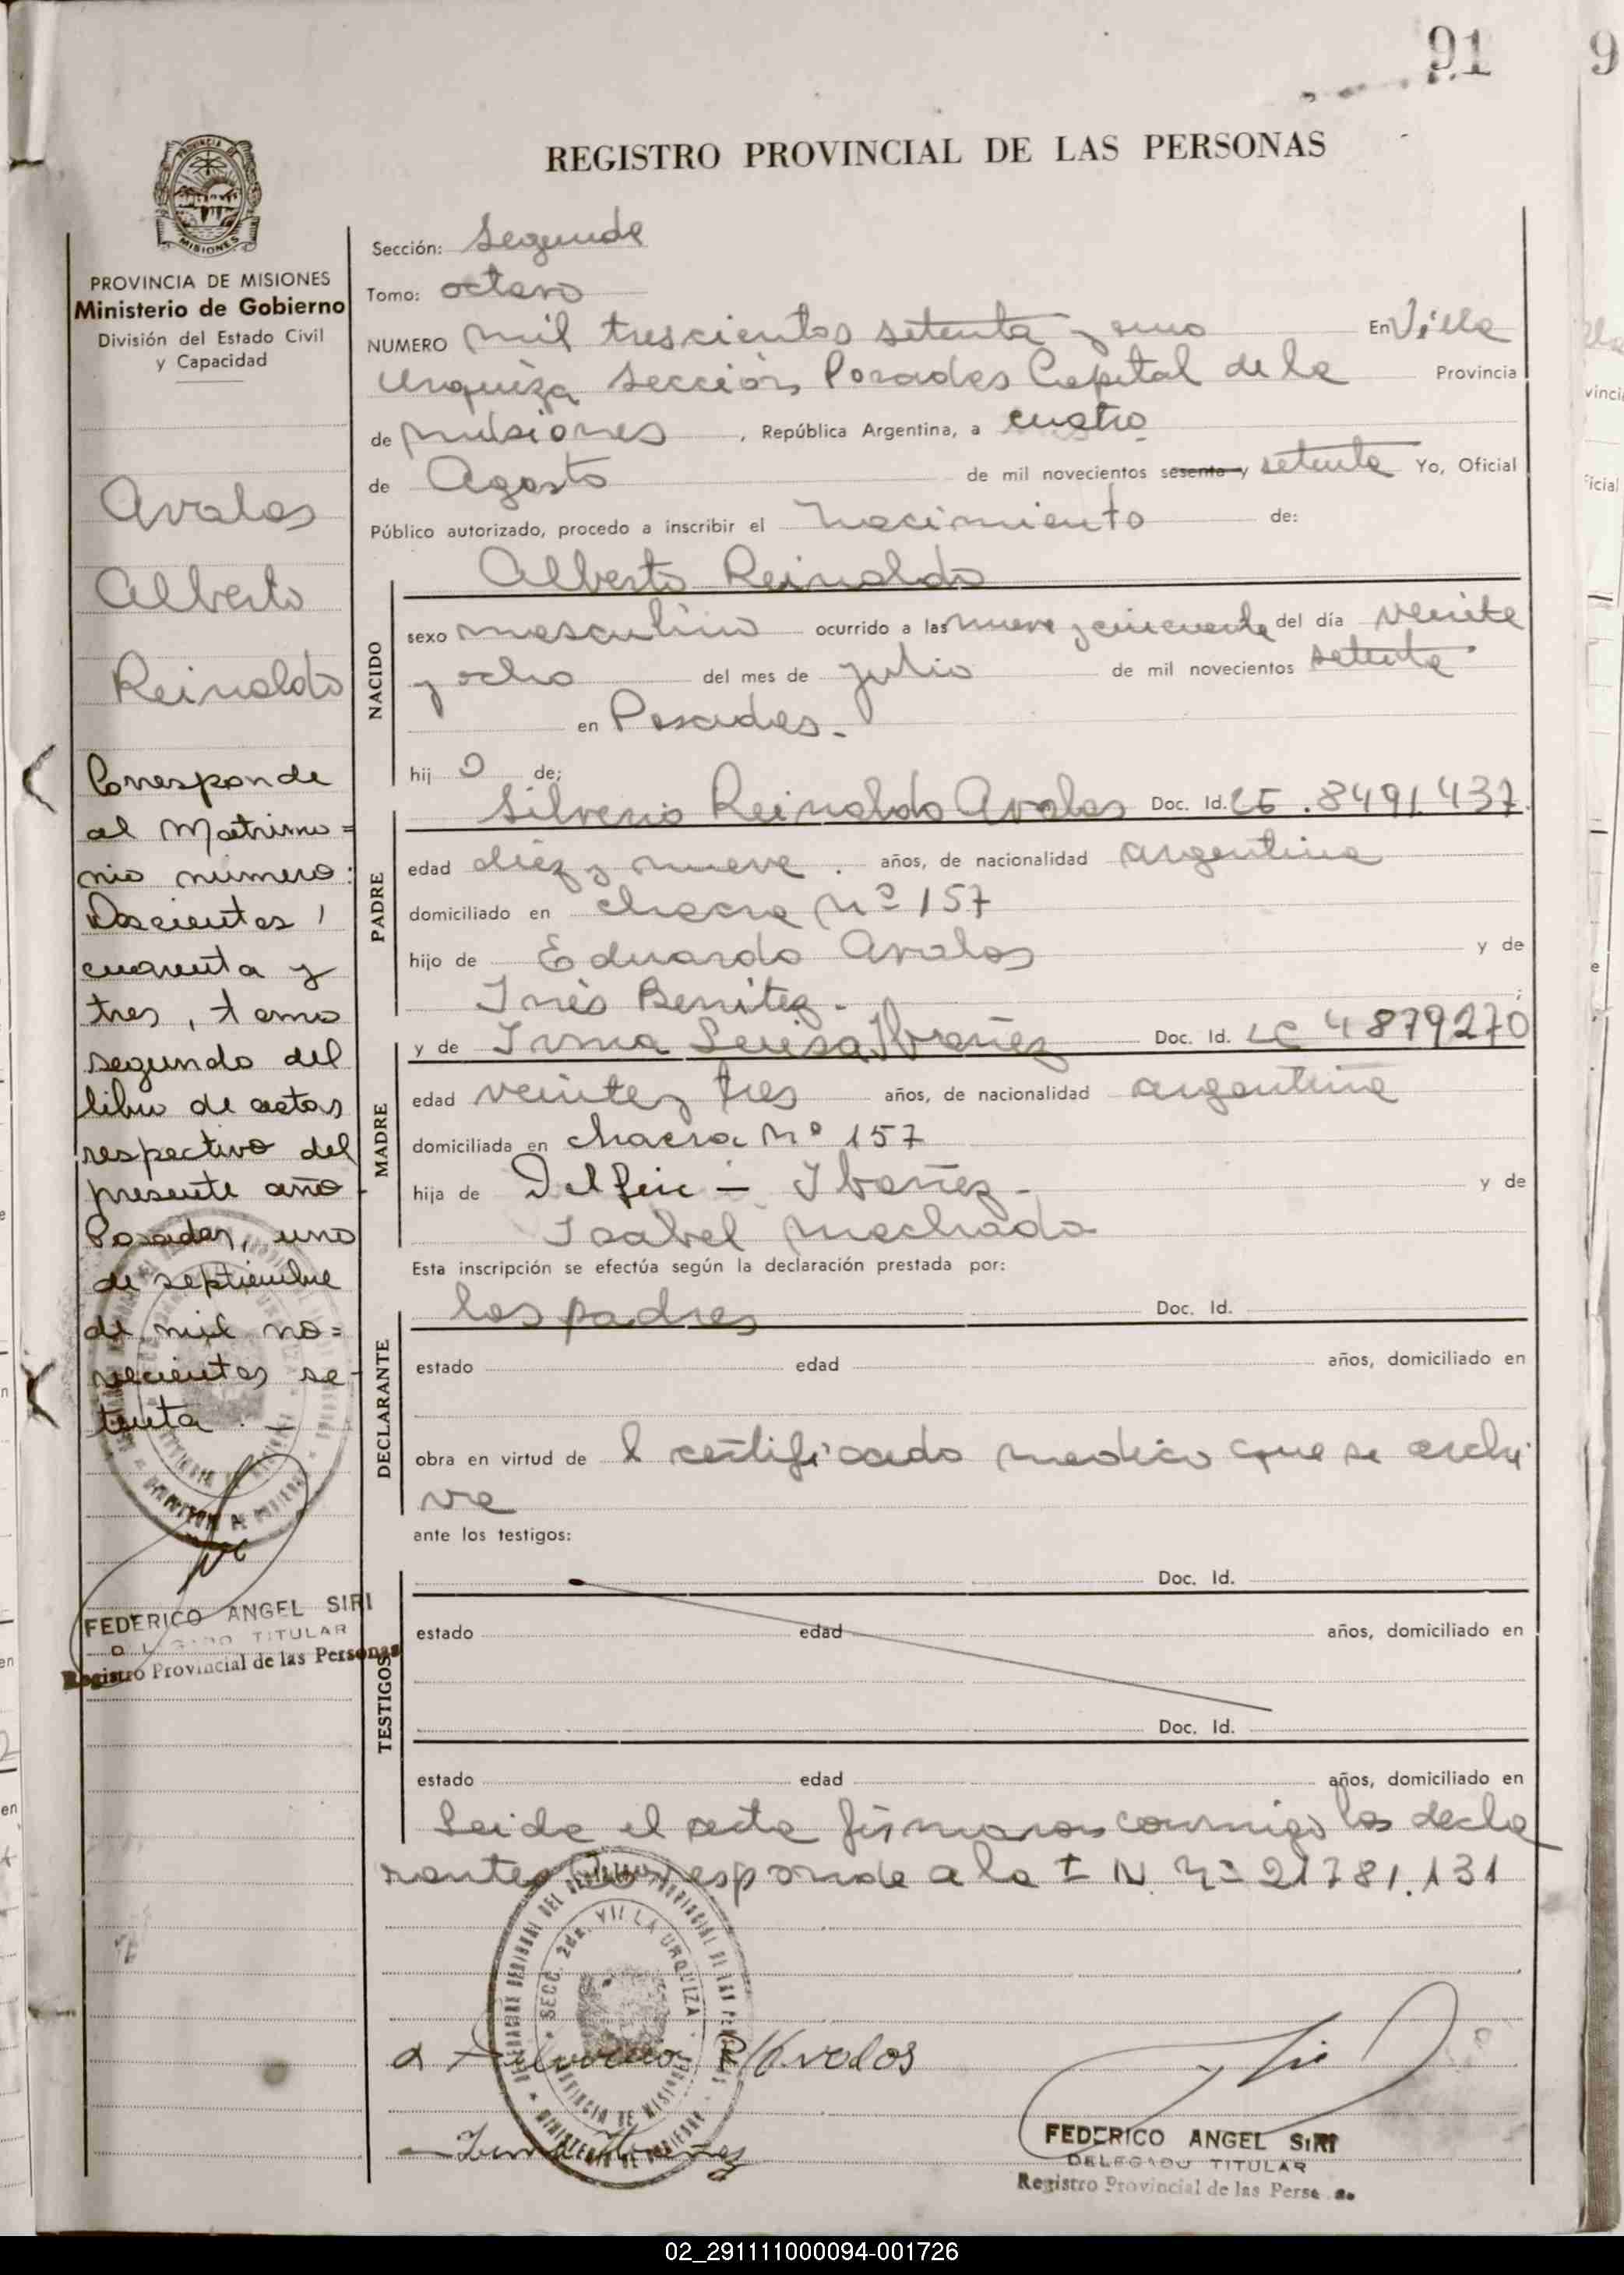 91
9
REGISTRO PROVINCIAL DE LAS PERSONAS
PROVINCIA DE
MISIONES
PROVINCIA DE MISIONES
Ministerio de Gobierno
División del Estado Civil
y Capacidad
Avalos
Alberto
Reinaldo
Corresponde
al Matrimo=
nio número:
Doscientos
cuarenta y
tres, tomo
segundo del
libro de actas
respectivo del
presente año
Posadas, uno
de septiembre
de mil no=
vecientos se-
tenta. _
FEDERICO ANGEL SIRI
TITULAR
Registro Provincial de las Personas
Sección: Segunda
Tomo: octavo
NUMERO Mil trescientos setenta y uno En Villa
Urquiza Sección Posadas Capital de la Provincia
de Misiones , República Argentina, a cuatro
de Agosto de mil novecientos sesenta y setenta Yo, Oficial
Público autorizado, procedo a inscribir el Nacimiento de:
Alberto Reinaldo
NACIDO
sexo masculino ocurrido a las nueve y cincuenta del día veinte
y ocho del mes de julio de mil novecientos setenta
en Posadas.-
hij o de;
Silverio Reinaldo Avalos Doc. Id. LE .8491.437.
PADRE
edad diez y nueve . años, de nacionalidad argentina
domiciliado en chacra Nº 157
hijo de Eduardo Avalos y de
Inés Benitez.- ;
y de Irma Luisa Ibañez Doc. Id. LC 4879270
MADRE
edad veinte y tres años, de nacionalidad argentina
domiciliada en chacra Nº 157
hija de Delfin - Ibañez - y de
Isabel Machado
Esta inscripción se efectúa según la declaración prestada por:
los padres Doc. Id.
DECLARANTE
estado edad años, domiciliado en
obra en virtud de l certificado medico que se archi
va
ante los testigos:
TESTIGOS
Doc. Id.
estado edad años, domiciliado en
Doc. Id.
estado edad años, domiciliado en
Leida el acta firmaron conmigo los decla
rantes Corresponde a la I N. Nº 21781.131
SECC. 2da. VILLA URQUIZA
PROVINCIA DE MISIONES
MINISTERIO DE GOBIERNO
Silverio R Avalos
Irma Ibañez
FEDERICO ANGEL SIRI
DELEGADO TITULAR
Registro Provincial de las Perso
02_291111000094-001726